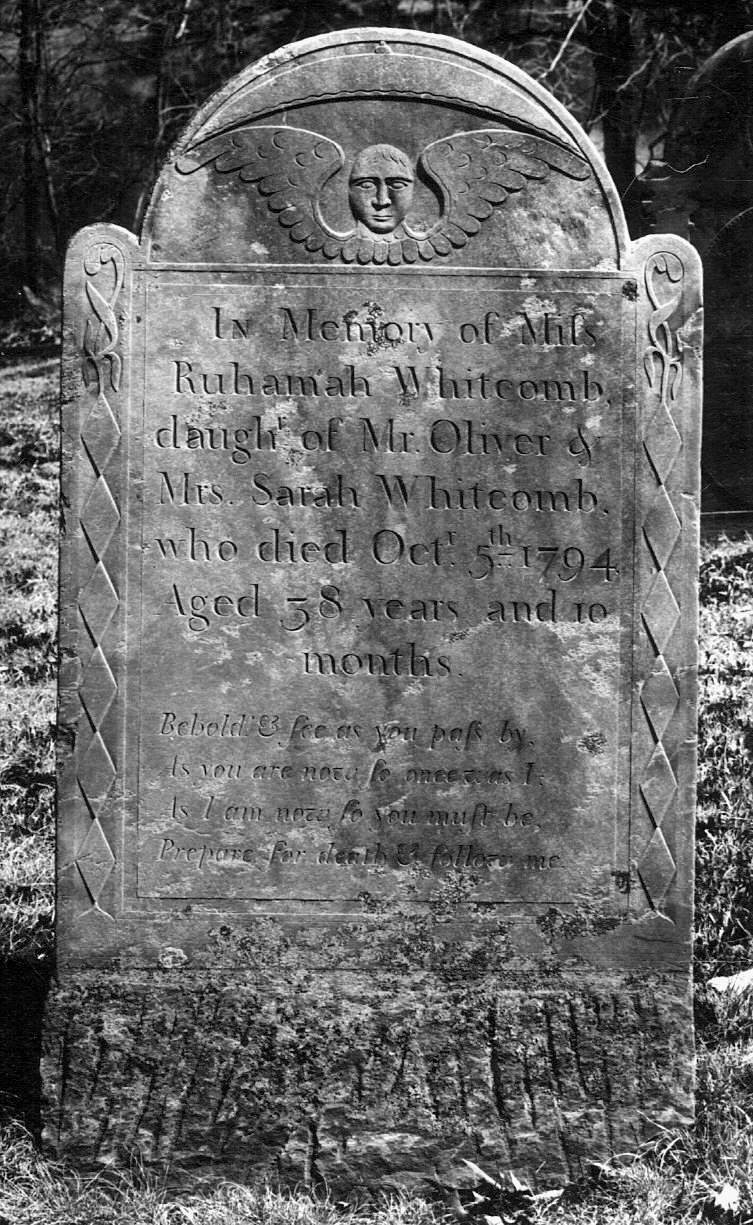 In Memory of Miſs
Ruhamah Whitcomb,
daughʳ. of Mr. Oliver &
Mrs. Sarah Whitcomb,
who died Octʳ. 5ᵗʰ 1794
Aged 38 years and 10
months.
Behold & ſee as you paſs by,
As you are now ſo once was I;
As I am now ſo you muſt be,
Prepare for death & follow me.